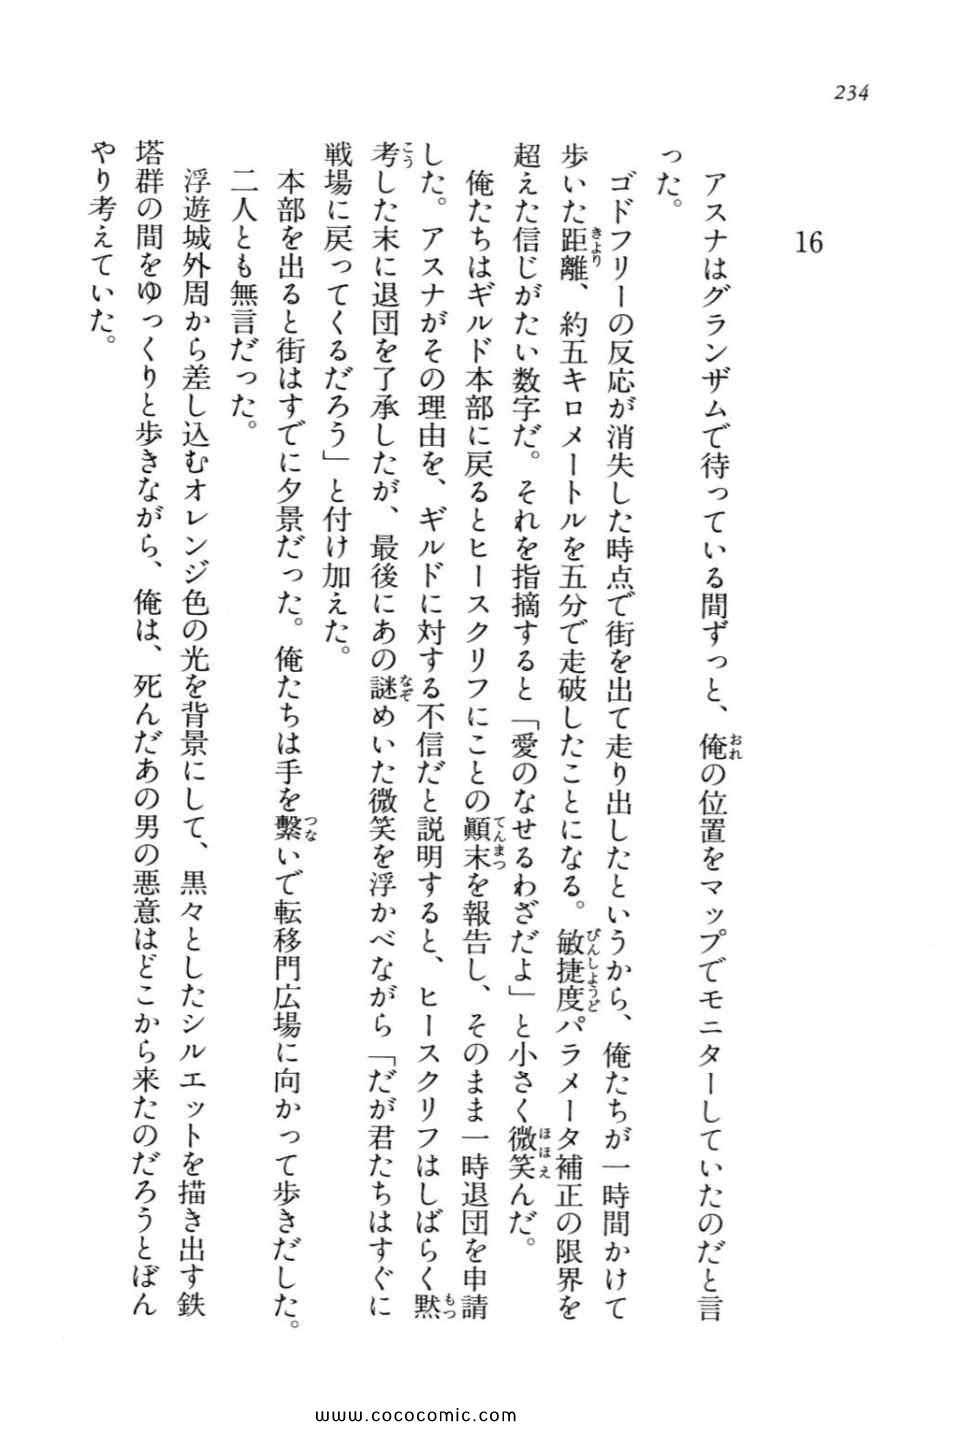 234
16
アスナはグランザムで待っている間ずっと、俺の位置をマップでモニターしていたのだと言
った。
ゴドフリーの反応が消失した時点で街を出て走り出したというから、俺たちが一時間かけて
歩いた距離、約五キロメートルを五分で走破したことになる。敏捷度パラメータ補正の限界を
超えた信じがたい数字だ。それを指摘すると「愛のなせるわざだよ」と小さく微笑んだ。
俺たちはギルド本部に戻るとヒースクリフにことの顚末を報告し、そのまま一時退団を申請
した。アスナがその理由を、ギルドに対する不信だと説明すると、ヒースクリフはしばらく黙
考した末に退団を了承したが、最後にあの謎めいた微笑を浮かべながら「だが君たちはすぐに
戦場に戻ってくるだろう」と付け加えた。
本部を出ると街はすでに夕景だった。俺たちは手を繫いで転移門広場に向かって歩きだした。
二人とも無言だった。
浮遊城外周から差し込むオレンジ色の光を背景にして、黒々としたシルエットを描き出す鉄
塔群の間をゆっくりと歩きながら、俺は、死んだあの男の悪意はどこから来たのだろうとぼん
やり考えていた。
www.cococomic.com